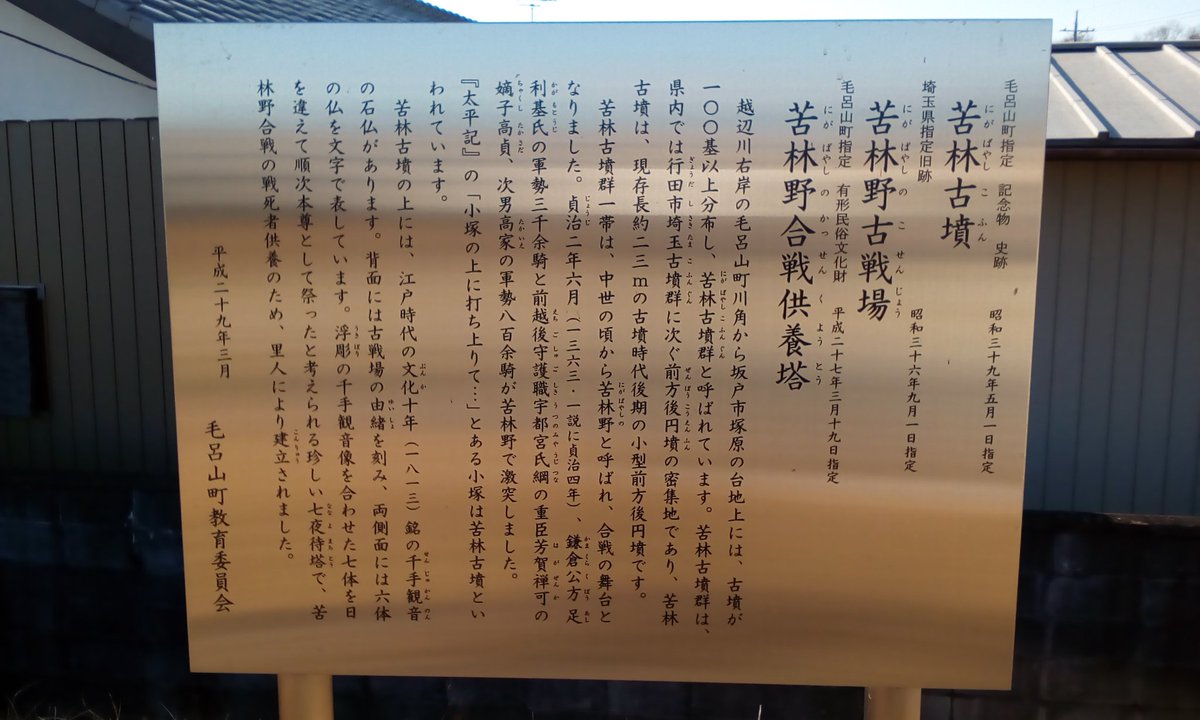 毛呂山町指定 記念物 史跡 昭和三十九年五月一日指定
にがばやしこふん
苦林古墳
埼玉県指定旧跡 昭和三十六年九月一日指定
にがばやしのこせんじょう
苦林野古戦場
毛呂山町指定 有形民俗文化財 平成二十七年三月十九日指定
にがばやしのかっせんくようとう
苦林野合戦供養塔
越辺川右岸の毛呂山町川角から坂戸市塚原の台地上には、古墳が
一〇〇基以上分布し、苦林古墳群と呼ばれています。苦林古墳群は、
県内では行田市埼玉古墳群に次ぐ前方後円墳の密集地であり、苦林
古墳は、現存長約二三mの古墳時代後期の小型前方後円墳です。
苦林古墳群一帯は、中世の頃から苦林野と呼ばれ、合戦の舞台と
なりました。貞治二年六月(一三六三・一説に貞治四年)、鎌倉公方 足
利基氏の軍勢三千余騎と前越後守護職宇都宮氏綱の重臣芳賀禅可の
嫡子高貞、次男高家の軍勢八百余騎が苦林野で激突しました。
『太平記』の「小塚の上に打ち上りて…」とある小塚は苦林古墳とい
われています。
苦林古墳の上には、江戸時代の文化十年(一八一三)銘の千手観音
の石仏があります。背面には古戦場の由緒を刻み、両側面には六体
の仏を文字で表しています。浮彫の千手観音像を合わせた七体を日
を違えて順次本尊として祭ったと考えられる珍しい七夜待塔で、苦
林野合戦の戦死者供養のため、里人により建立されました。
平成二十九年三月 毛呂山町教育委員会